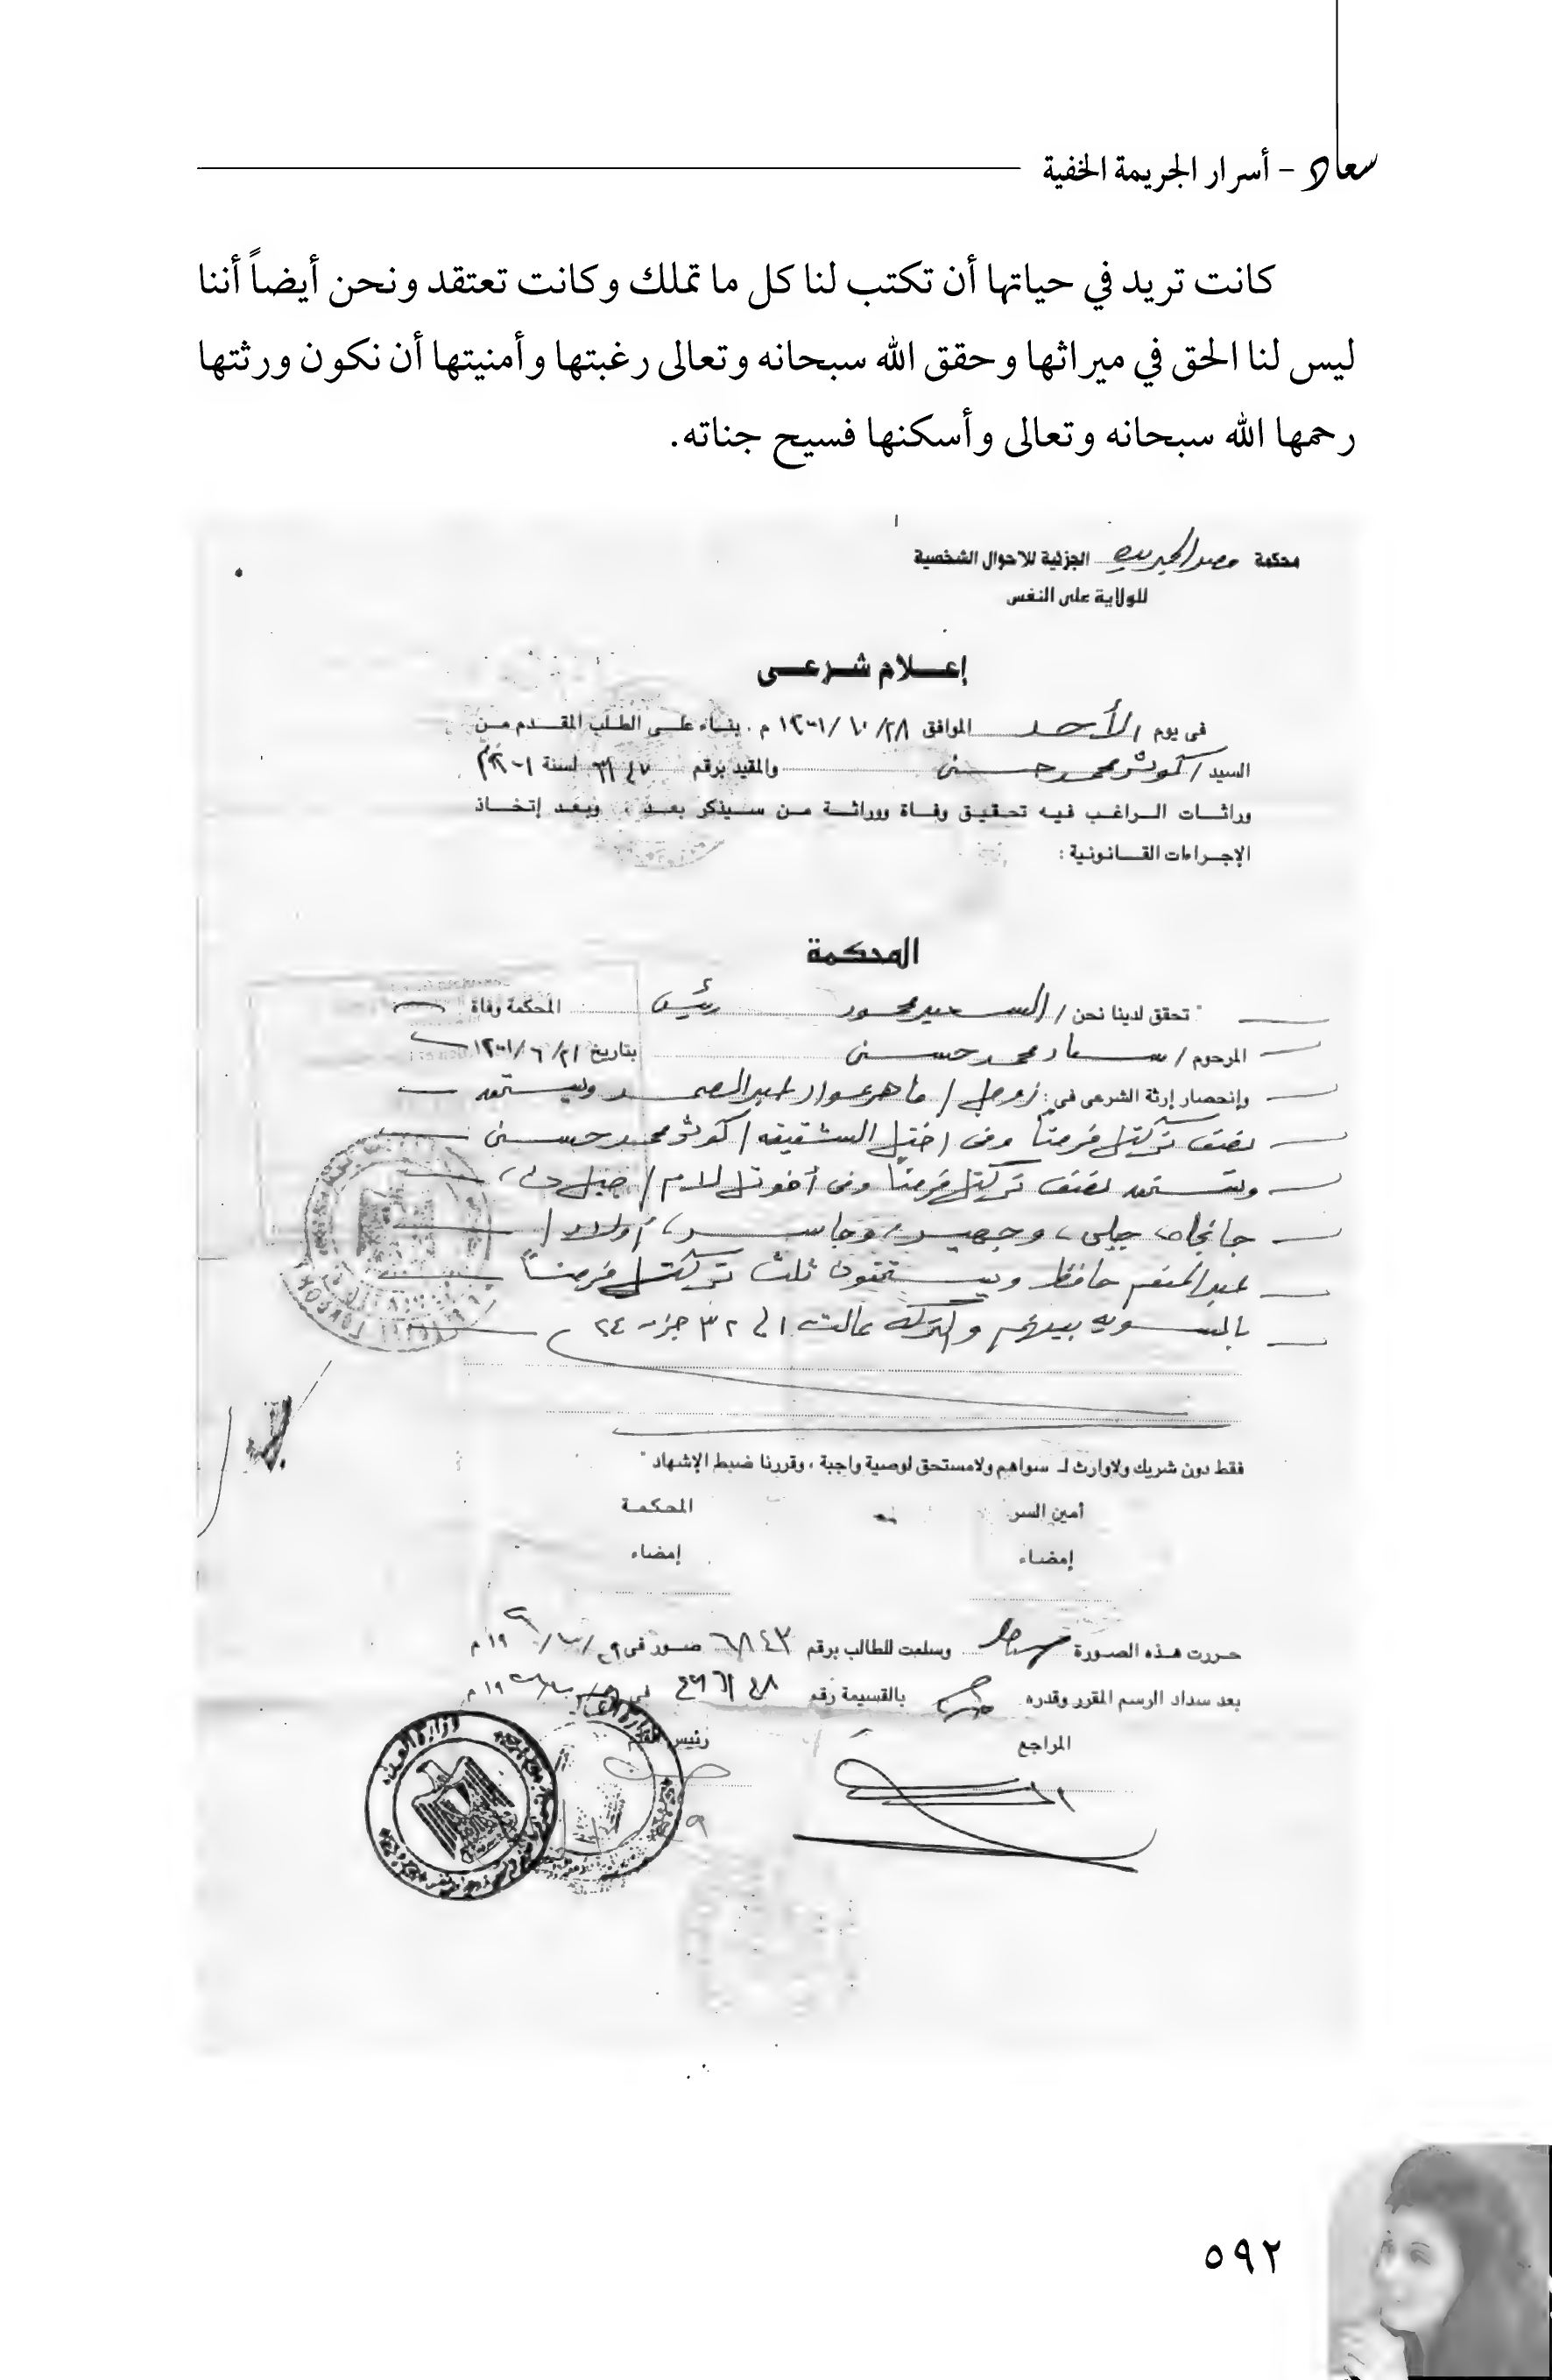 سعاد - أسرار الجريمة الخفية
كانت تريد في حياتها أن تكتب لنا كل ما تملك وكانت تعتقد ونحن أيضاً أننا
ليس لنا الحق في ميراثها وحقق الله سبحانه وتعالى رغبتها وأمنيتها أن نكون ورثتها
رحمها الله سبحانه وتعالى وأسكنها فسيح جناته.
محكمة مصر الجديدة الجزئية للاحوال الشخصية
للولاية على النفس
إعلام شرعى
فى يوم الأحد الموافق ٢٨/ ١٠/ ٢٠٠١ م. بناء على الطلب المقدم من
السيد / كوثر محمد حسنى والمقيد برقم لسنة ٢٠٠١
وراثات الراغب فيه تحقيق وفاة ووراثة من سيذكر بعد وبعد إتخاذ
الإجراءات القانونية :
المحكمة
" تحقق لدينا نحن / السعيد محمود رئيس المحكمة وفاة
المرحوم / سعاد محمد حسنى بتاريخ ٢١/ ٦/ ٢٠٠١
وإنحصار إرثة الشرعى في : زوجها / ماهر عواد عبد الصمد ويستحق
نصف تركتها فرضاً وفى اختها الشقيقه / كوثر محمد حسنى
وتستحق نصف تركتها فرضاً وفى أخوتها لام /
جانجاه، جيلى، وجهير، وجاسر، أولاد /
عبد المنعم حافظ ويستحقون ثلث تركتها فرضاً
بالسويه بينهم والتركه عالت الى ٣٢ جزء ٢٤
فقط دون شريك ولاوارث لـ سواهم ولامستحق لوصية واجبة ، وقررنا ضبط الإشهاد "
أمين السر المحكمة
إمضاء إمضاء
حررت هذه الصورة وسلمت للطالب برقم ٦٨٤٣ صور فى م
بعد سداد الرسم المقرر وقدره بالقسيمة رقم فى م
المراجع رئيس القلم
وزارة العدل
٥٩٢